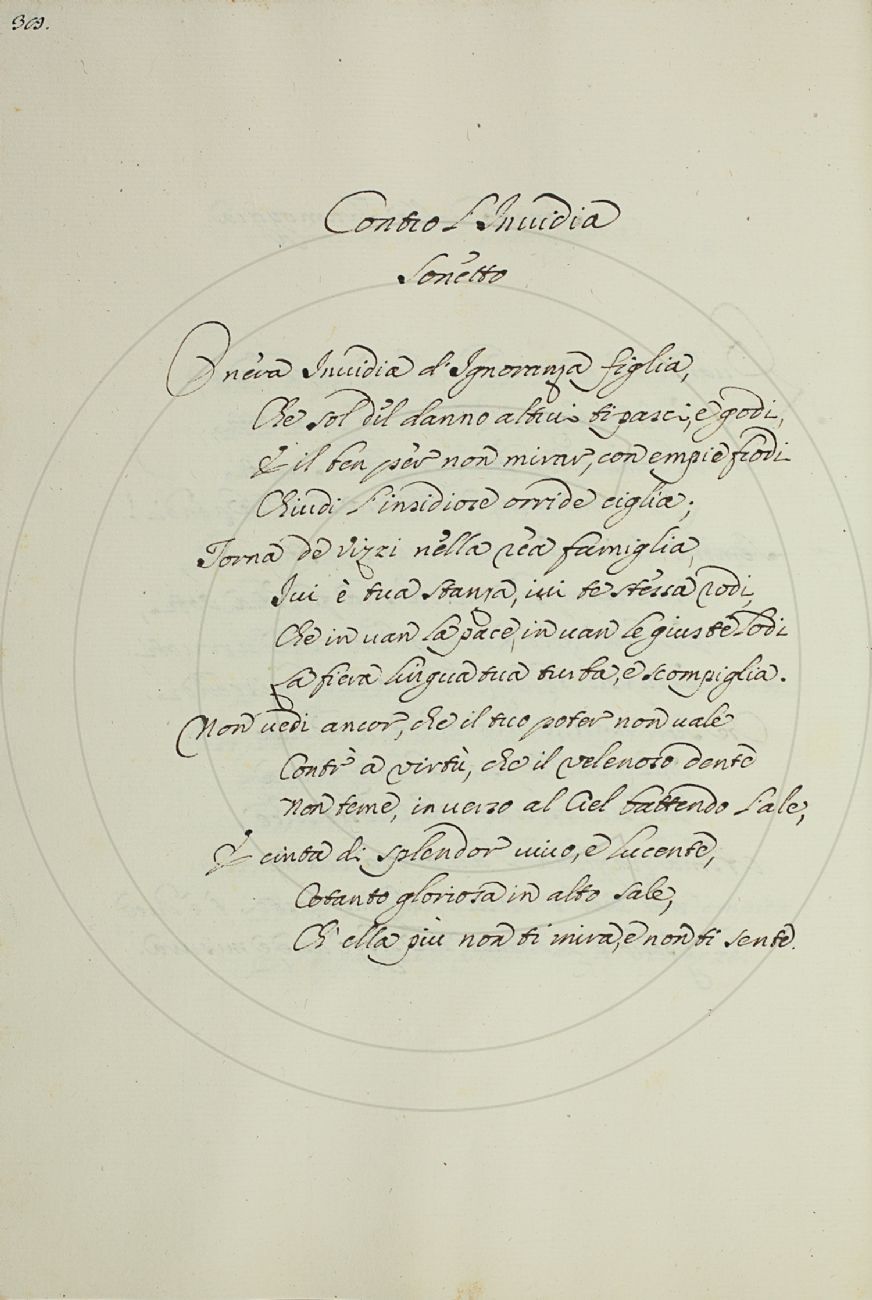 369.
Contro l'Invidia
Sonetto
O nera Invidia d'Ignoranza figlia,
Che sol del danno altrui ti pasci, e godi,
E il ben per non mirar, con empie frodi
Chiudi l'insidiose orride ciglia;
Torna de vizzi nella rea famiglia,
Ivi è tua stanza, ivi te stessa rodi,
Che in van la pace, in van le giuste lodi
La fiera lingua tua turba, e scompiglia.
Non vedi ancor, che il tuo poter non vale
Contr' a virtù, che il velenoso dente
Non teme, in verso al Ciel battendo l'ale,
E cinta di splendor vivo, e lucente,
Cotanto gloriosa in alto sale,
Ch' ella più non ti mira, e non ti sente.